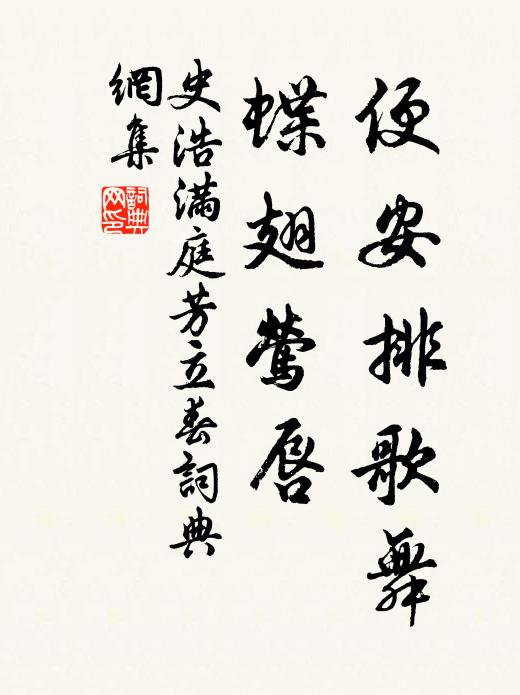 便安排歌舞
蝶翅鶯唇
史浩满庭芳立春詞典
網集
詞典網印